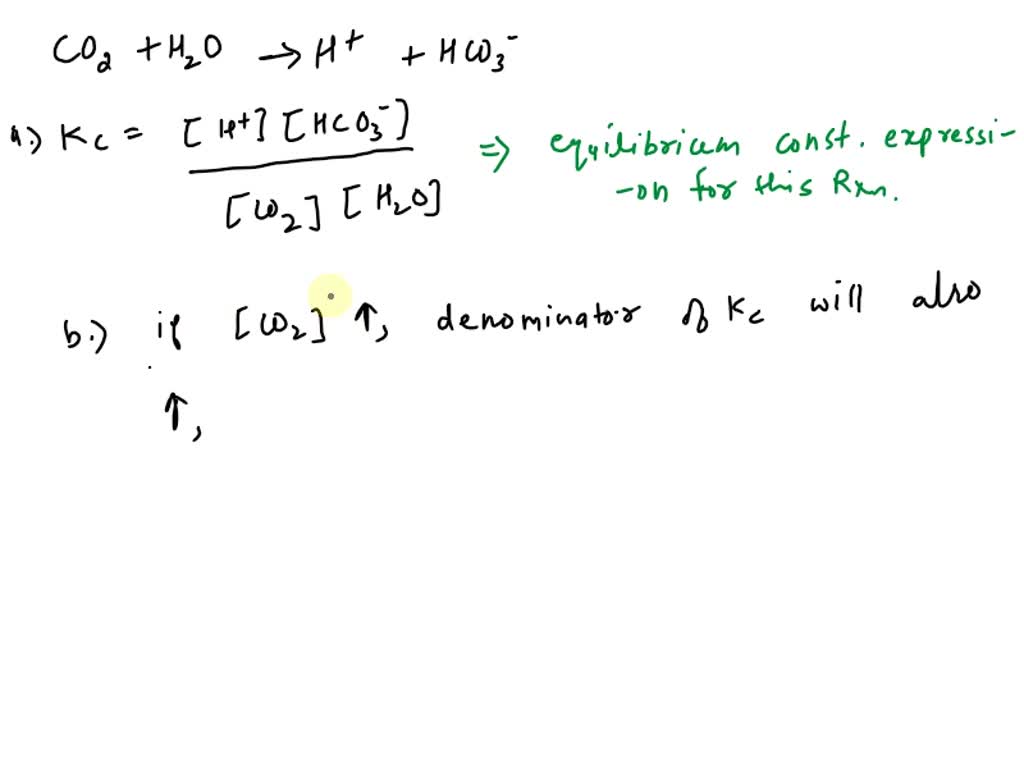 CO₂ + H₂O → H⁺ + HCO₃⁻
a.) Kc = [H⁺] [HCO₃⁻] / [CO₂] [H₂O] ⇒ equilibrium const. expressi-
-on for this Rxn.
b.) if [CO₂] ↑, denominator of Kc will also
↑,